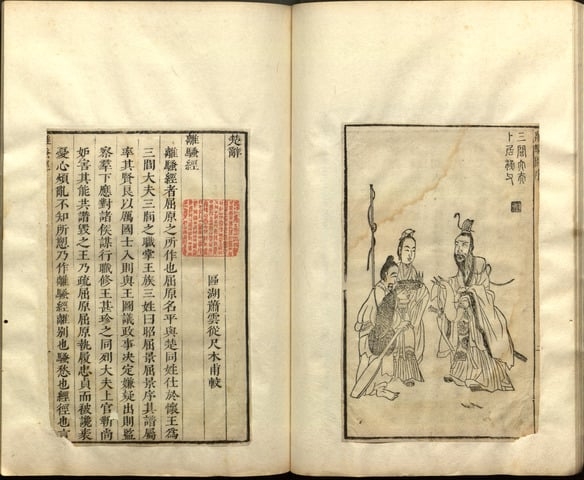 三閭大夫
卜居漁父
楚辭
區湖蕭雲從尺木甫較
離騷經
離騷經者屈原之所作也屈原名平與楚同姓仕於懷王爲
三閭大夫三閭之職掌王族三姓曰昭屈景屈原序其譜屬
率其賢良以厲國士入則與王圖議政事決定嫌疑出則監
察羣下應對諸侯謀行職修王甚珍之同列大夫上官靳尚
妒害其能共譖毀之王乃疏屈原屈原執履忠貞而被讒衺
憂心煩亂不知所愬乃作離騷經離別也騷愁也經徑也言